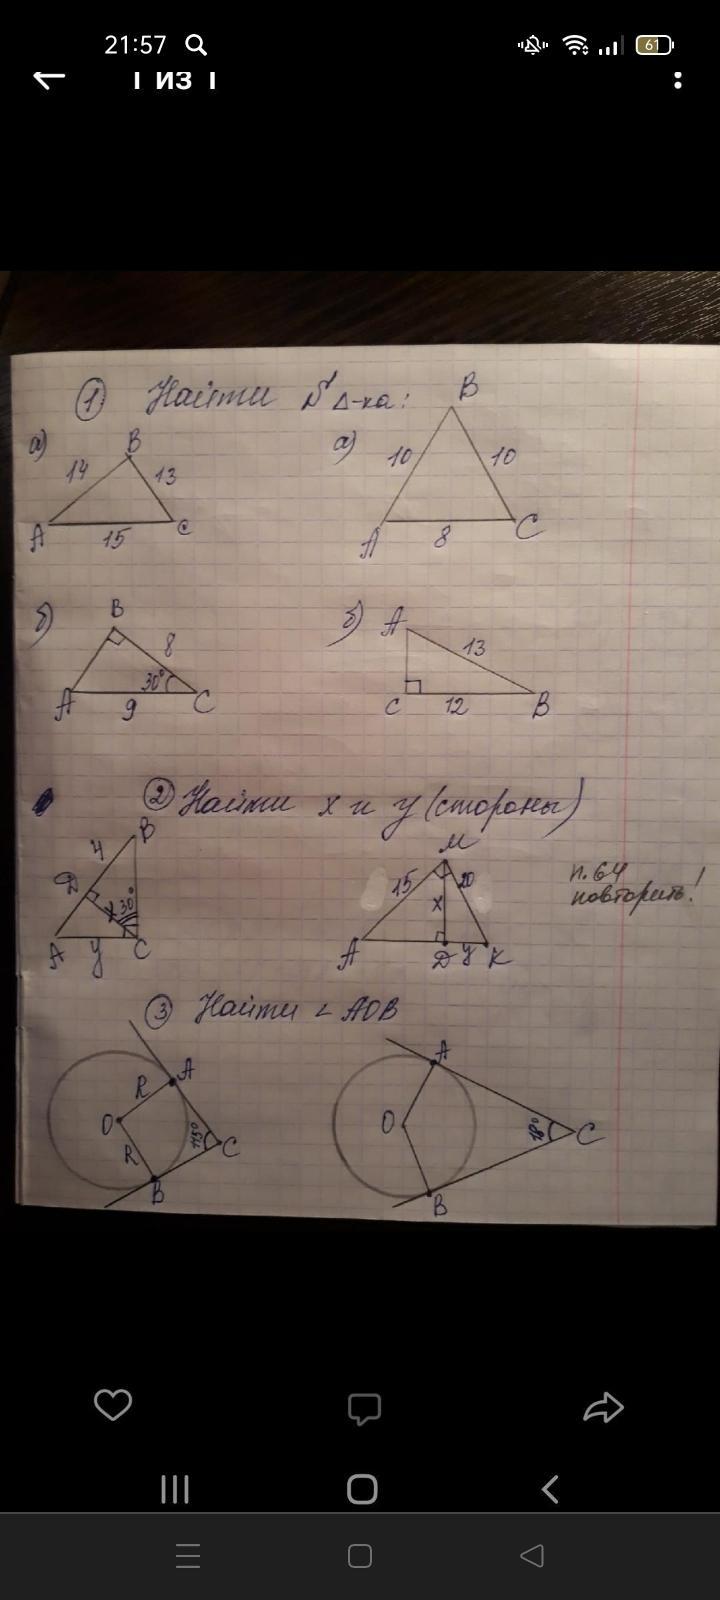 21:57
61
1 из 1
① Найти S Δ-ка:
а)
B
14
13
A
15
C
а)
B
10
10
A
8
C
б)
B
8
30°
A
9
C
б)
A
13
C
12
B
② Найти x и y (стороны)
B
4
D
x
30°
A
y
C
M
15
20
x
A
D
y
K
п.64
повторить!
③ Найти ∠ AOB
A
R
O
R
C
B
A
O
18°
C
B